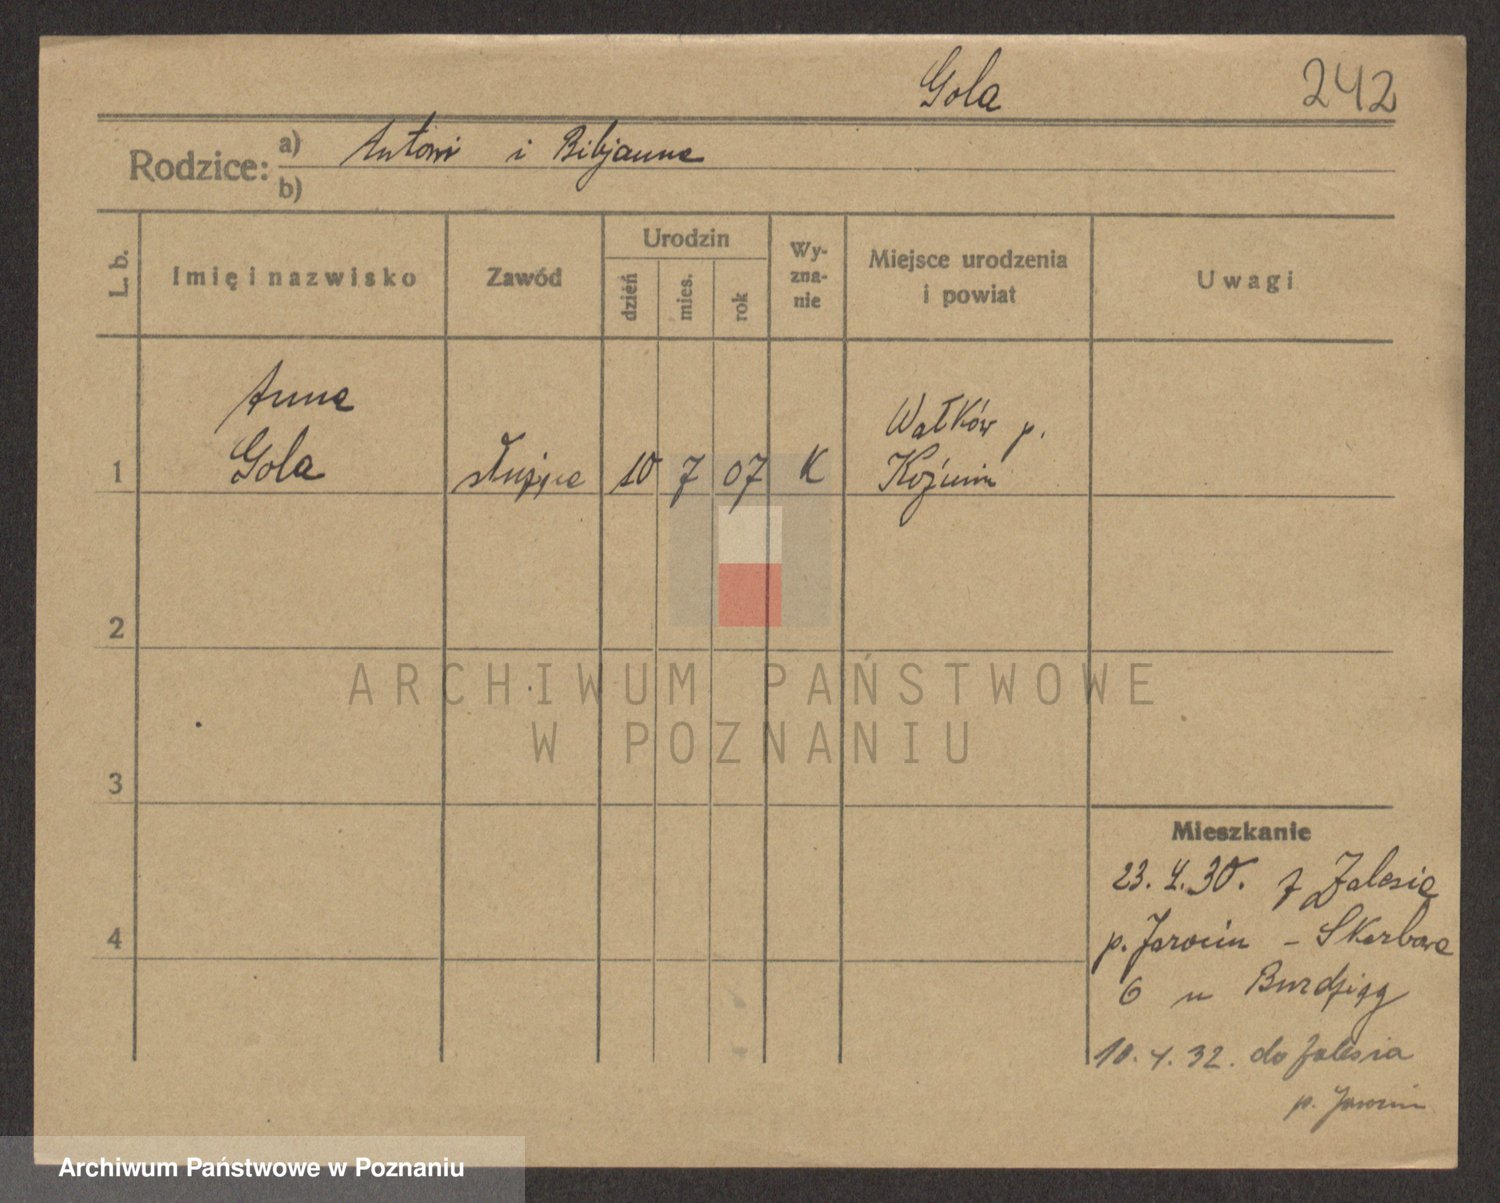 Gola 242
Rodzice: a) Antoni i Bibjanna
b)
L. b. Imię i nazwisko Zawód Urodzin dzień mies. rok Wy-zna-nie Miejsce urodzenia i powiat Uwagi
Anna
Gola
1 służąca 10 7 07 K Wałków p.
Koźmin
2
ARCHIWUM PAŃSTWOWE
W POZNANIU
3
Mieszkanie
23. 4. 30. z Zalesia
4 p. Jarocin – Skarbowa
6 u
10. 4. 32. do Zalesia
p. Jarocin
Archiwum Państwowe w Poznaniu